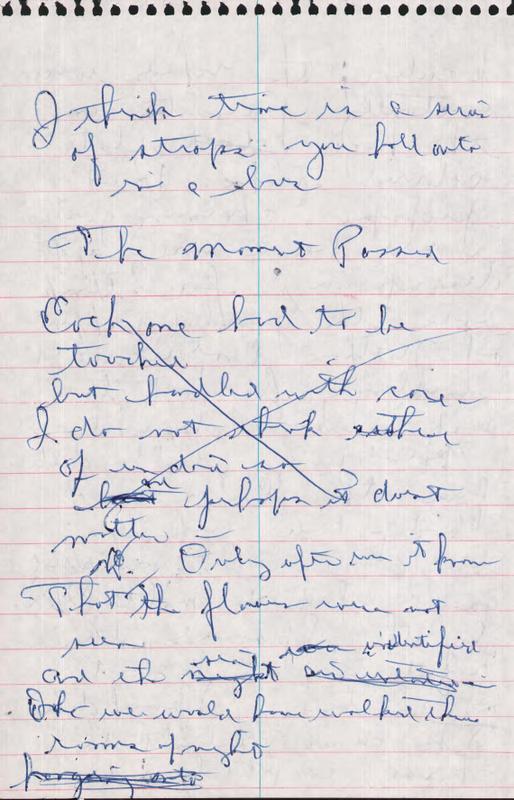 I think time is a series
of straps you hold onto
in a bus
The Moment Passed
Each one had to be
touched
but handled with care
I do not think either
of us do so
perhaps it doesnt
matter
Only after was it known
That the flowers were not
seen
identified
and the
we would have walked
rooms of night
hanging onto